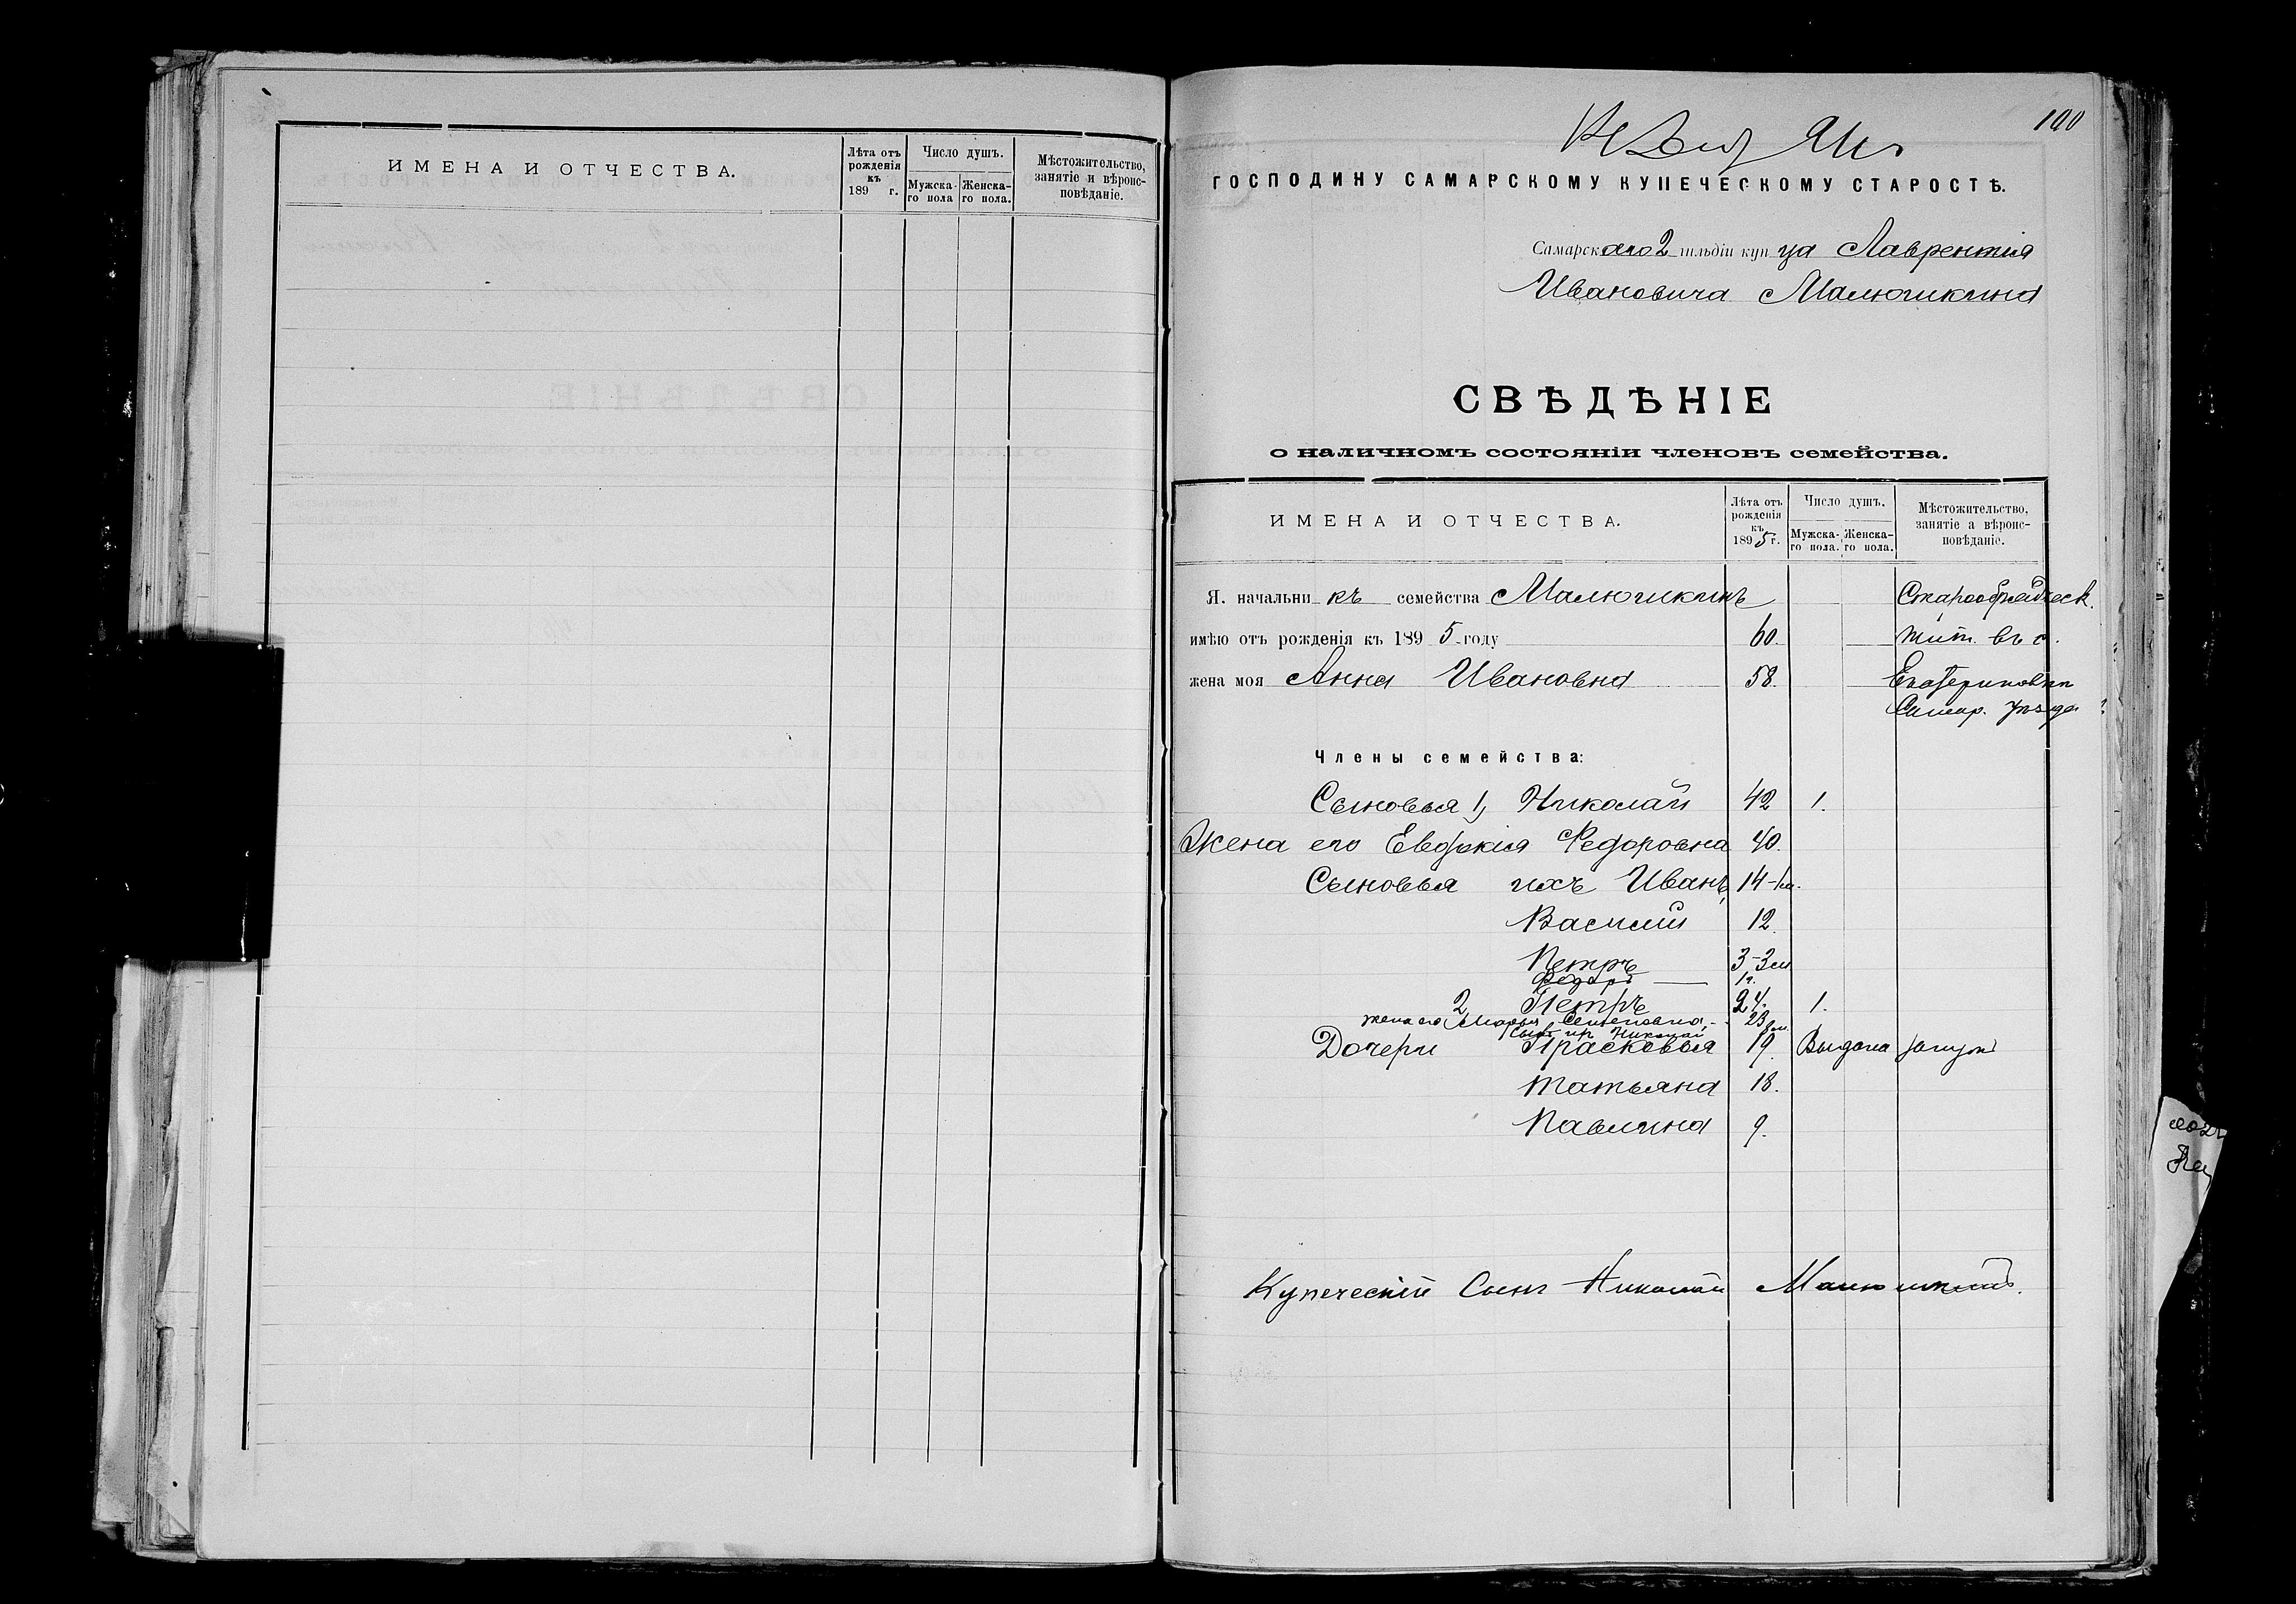 ИМЕНА И ОТЧЕСТВА.
Лѣта отъ рожденія къ 189 г.
Число душъ.
Мужска-го пола
Женска-го пола.
Мѣстожительство, занятіе и вѣроис-повѣданіе.
100
ГОСПОДИНУ САМАРСКОМУ КУПЕЧЕСКОМУ СТАРОСТѢ.
Самарскаго 2 гильдіи купца Лаврентія
Ивановича Малючикина
СВѢДѢНІЕ
о наличномъ состояніи членовъ семейства.
ИМЕНА И ОТЧЕСТВА.
Лѣта отъ рожденія къ 1895 г.
Число душъ.
Мужска-го пола.
Женска-го пола.
Мѣстожительство, занятіе а вѣроис-повѣданіе.
Я. начальникъ семейства Малючикинъ
имѣю отъ рожденія къ 1895 году 60. жит. въ с.
жена моя Анна Ивановна 58. Екатериновки
Самар. уѣзда
Члены семейства:
Сыновья 1, Николай 42 1.
Жена его Евдокія Федоровна 40.
Сыновья ихъ Иванъ, 14-1м.
Василій 12.
Петръ 3-3м
Федоръ 1г.
2 Петръ 24. 1.
жена его Марья Семеновна, 23
Сынъ ихъ Николай 8м.
Дочери Прасковья 19. Выдана замужъ
Татьяна 18.
Павлина 9.
Купеческій Сынъ Николай Малючикинъ.